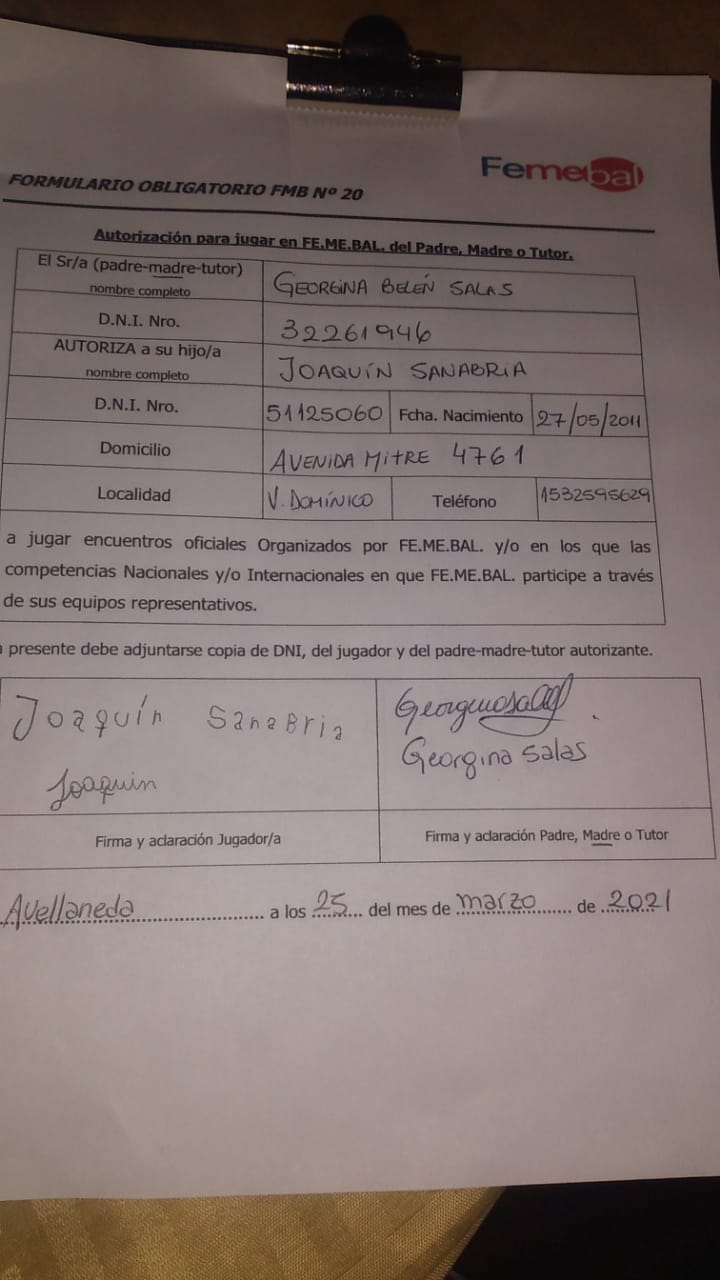 Femebal
FORMULARIO OBLIGATORIO FMB Nº 20
Autorización para jugar en FE.ME.BAL. del Padre, Madre o Tutor.
El Sr/a (padre-madre-tutor)
nombre completo
GEORGINA BELÉN SALAS
D.N.I. Nro.
32261946
AUTORIZA a su hijo/a
nombre completo
JOAQUÍN SANABRIA
D.N.I. Nro.
51125060
Fcha. Nacimiento
27/05/2011
Domicilio
AVENIDA MITRE 4761
Localidad
V. DOMÍNICO
Teléfono
1532595629
a jugar encuentros oficiales Organizados por FE.ME.BAL. y/o en los que las
competencias Nacionales y/o Internacionales en que FE.ME.BAL. participe a través
de sus equipos representativos.
presente debe adjuntarse copia de DNI, del jugador y del padre-madre-tutor autorizante.
Joaquín Sanabria
Joaquin
Georgina Salas
Firma y aclaración Jugador/a
Firma y aclaración Padre, Madre o Tutor
Avellaneda a los 25 del mes de marzo de 2021